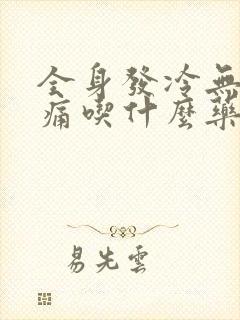 全身發冷無
痛喫什麼藥
易先雲